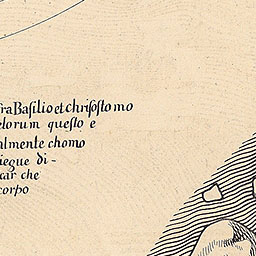 fra Baſilio et chriſoſtomo
elorum queſto e
almente chomo
iegue di-
car che
corpo